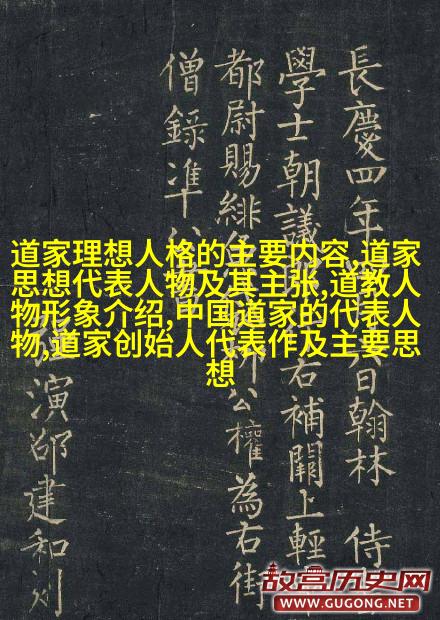 道家理想人格的主要内容,道家
思想代表人物及其主张,道教人
物形象介绍,中国道家的代表人
物,道家创始人代表作及主要思
想
長慶四年 六日翰林 侍
學士朝議 右補闕上輕
都尉賜緋 公權為右街
僧錄准公
演邵建和刻
故宫历史网
WWW.GUGONG.NET